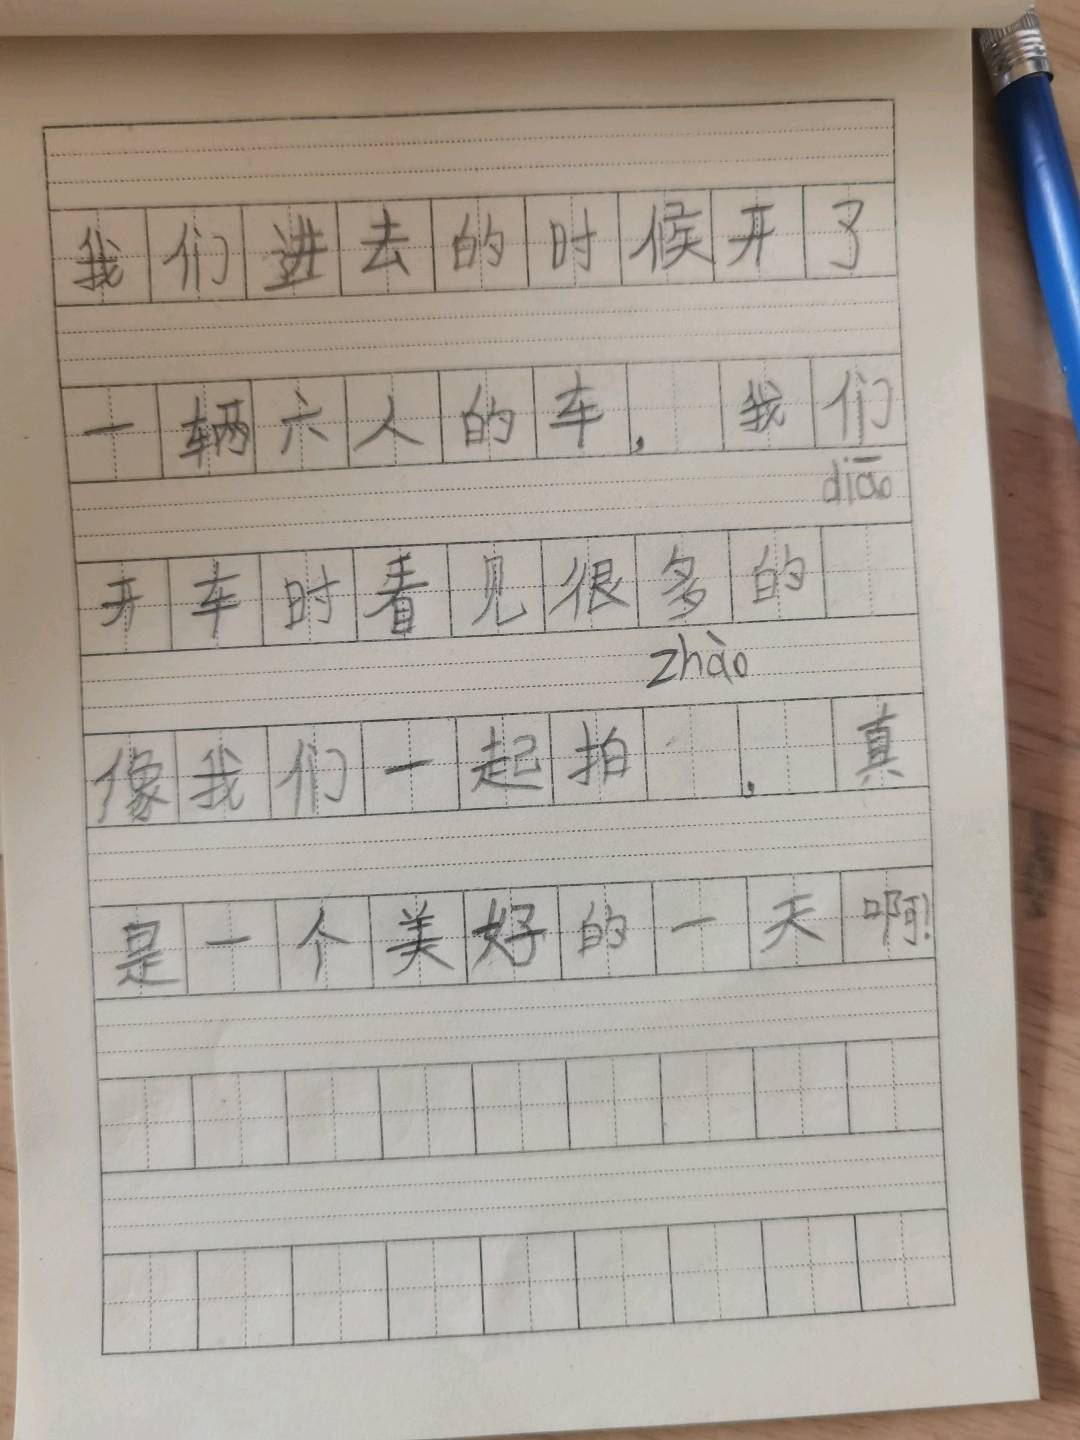 我们进去的时候开了
一辆六人的车，我们
diāo
开车时看见很多的
zhào
像我们一起拍，真
是一个美好的一天啊!